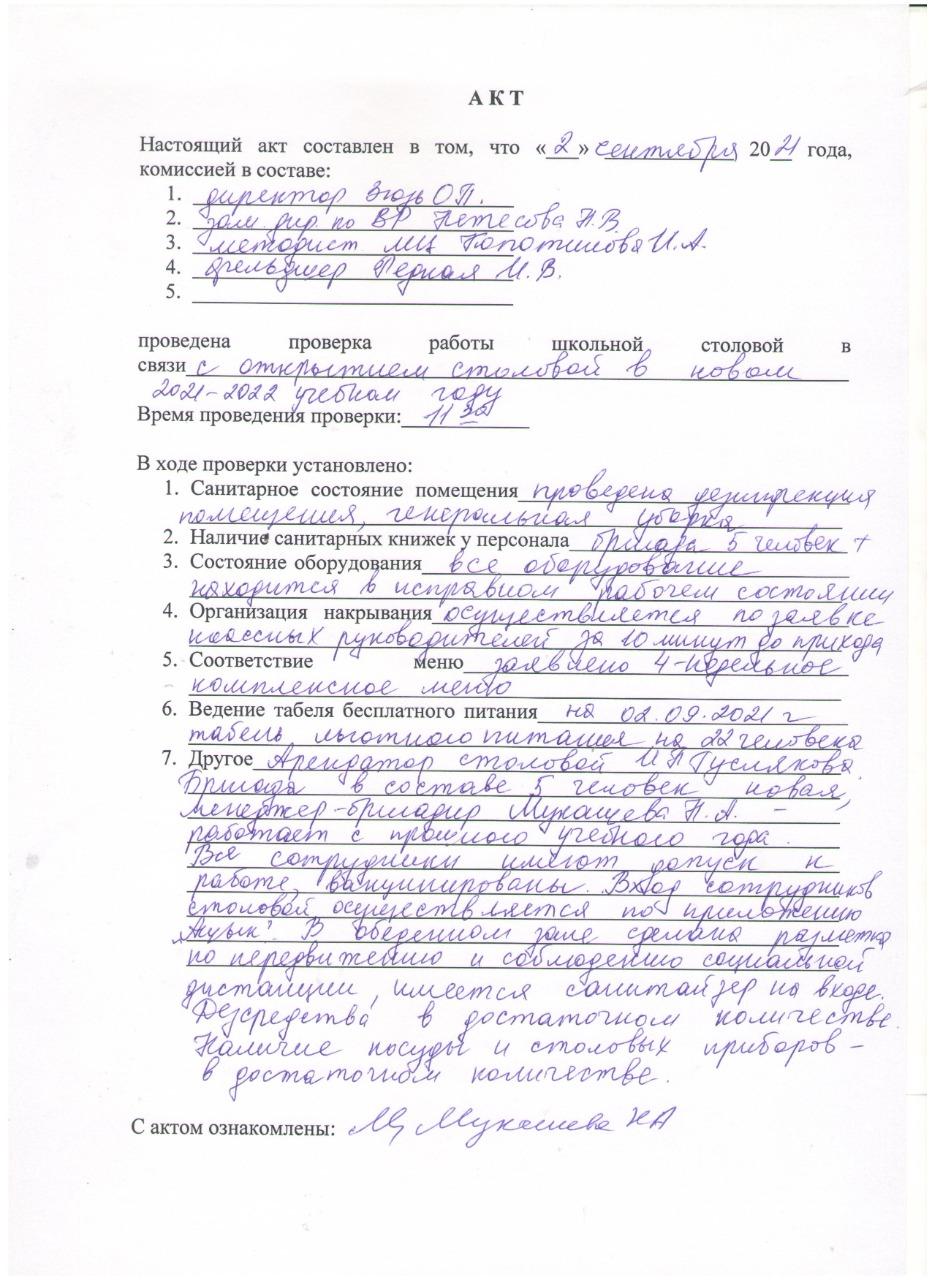 АКТ
Настоящий акт составлен в том, что «2» сентября 2021 года,
комиссией в составе:
1. директор Эгозь О.П.
2. зам. дир. по ВР Нетесова Н.В.
3. методист МЦ И.А.
4. фельдшер Редкая И.В.
5.
проведена проверка работы школьной столовой в
связи с открытием столовой в новом
2021-2022 учебном году
Время проведения проверки: 11 30
В ходе проверки установлено:
1. Санитарное состояние помещения проведена дезинфекция
помещения, генеральная уборка
2. Наличие санитарных книжек у персонала бригада 5 человек +
3. Состояние оборудования все оборудование
находится в исправном рабочем состоянии
4. Организация накрывания осуществляется по заявке
классных руководителей за 10 минут до прихода
5. Соответствие меню заявлено 4-недельное
комплексное меню
6. Ведение табеля бесплатного питания на 02.09.2021 г
табель льготного питания на 22 человека
7. Другое Арендатор столовой ИП Гуслякова.
Бригада в составе 5 человек новая,
менеджер-бригадир Мукашева Н.А. –
работает с прошлого учебного года.
Все сотрудники имеют допуск к
работе, вакцинированы. Вход сотрудников
столовой осуществляется по приложению
„Ашык". В обеденном зале сделана разметка
по передвижению и соблюдению социальной
дистанции, имеется санитайзер на входе.
Дезсредства в достаточном количестве.
Наличие посуды и столовых приборов –
в достаточном количестве.
С актом ознакомлены: Мукашева НА